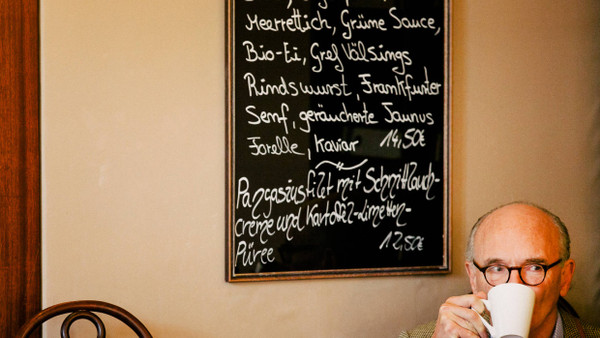 Meerrettich, Grüne Sauce,
Bio-Ei, Gref Völsings
Rindswurst, Frankfurter
Senf, geräucherte Taunus
Forelle, Kaviar 14,50€
Pangasiusfilet mit Schnittlauch-
creme und Kartoffel-Limetten-
Püree 12,50€